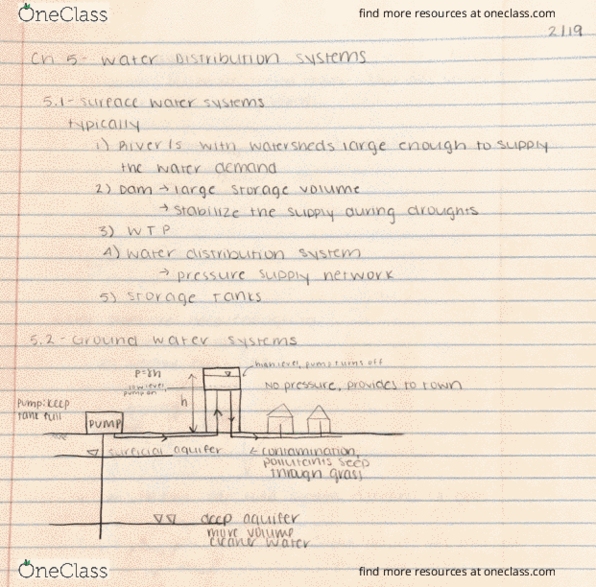 OneClass
find more resources at oneclass.com
2/19
Ch 5 - Water Distribution Systems
5.1 - Surface water systems
typically
1) River/s with watersheds large enough to supply
the water demand
2) Dam → large storage volume
→ stabilize the supply during droughts
3) WTP
4) water distribution system
→ pressure supply network
5) storage tanks
5.2 - Ground water systems
high level, pump turns off
P=γh
low level
pump on
No pressure, provides to town
h
pump: keep
tank full
PUMP
surficial aquifer
← contamination,
pollutants seep
through grass
deep aquifer
more volume
cleaner water
OneClass
find more resources at oneclass.com